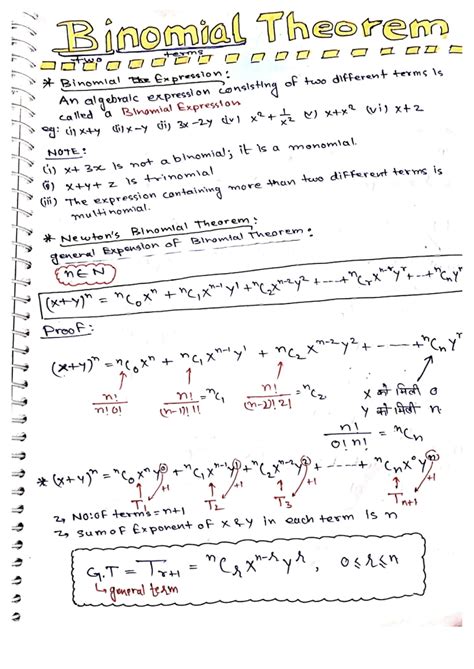 Binomial Theorem
two terms
* Binomial the Expression:
An algebraic expression consisting of two different terms is
called a Binomial Expression
eg: (i) x+y (ii) x-y (iii) 3x-2y (iv) x² + 1/x² (v) x+x² (vi) x+z
NOTE:
(i) x+3x is not a binomial; it is a monomial.
(ii) x+y+z is trinomial
(iii) The expression containing more than two different terms is
multinomial.
* Newton's Binomial Theorem:
general Expension of Binomial Theorem:
n∈N
(x+y)ⁿ = ⁿC₀xⁿ + ⁿC₁xⁿ⁻¹y¹ + ⁿC₂xⁿ⁻²y² + ---- + ⁿCᵣxⁿ⁻ʳyʳ + --- + ⁿCₙyⁿ
Proof:
(x+y)ⁿ = ⁿC₀xⁿ + ⁿC₁xⁿ⁻¹y¹ + ⁿC₂xⁿ⁻²y² + ----- + ⁿCₙyⁿ
n!/n!0! n!/(n-1)!1! = ⁿC₁ n!/(n-2)!2! x को मिली 0
y को मिली n
n!/0!n! = ⁿCₙ
* (x+y)ⁿ = ⁿC₀xⁿy⁰ + ⁿC₁xⁿ⁻¹y¹ + ⁿC₂xⁿ⁻²y² + ---- + ⁿCₙx⁰yⁿ
T₁ +1 T₂ +1 T₃ +1 Tₙ₊₁ +1
↳ No: of terms = n+1
↳ sum of Exponent of x & y in each term is n
G.T = Tᵣ₊₁ = ⁿCᵣxⁿ⁻ʳyʳ, 0≤r≤n
↳ general term